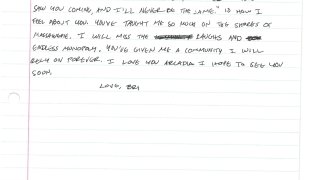 SAW YOU COMING, AND I'LL NEVER BE THE SAME." IS HOW I
FEEL ABOUT YOU. YOU'VE TAUGHT ME SO MUCH ON THE SHORES OF
MASSAWEPIE. I WILL MISS THE LAUGHS AND
ENDLESS MONOPOLY, YOU'VE GIVEN ME A COMMUNITY I WILL
RELY ON FOREVER. I LOVE YOU ARCADIA I HOPE TO SEE YOU
SOON.
LOVE, BRI